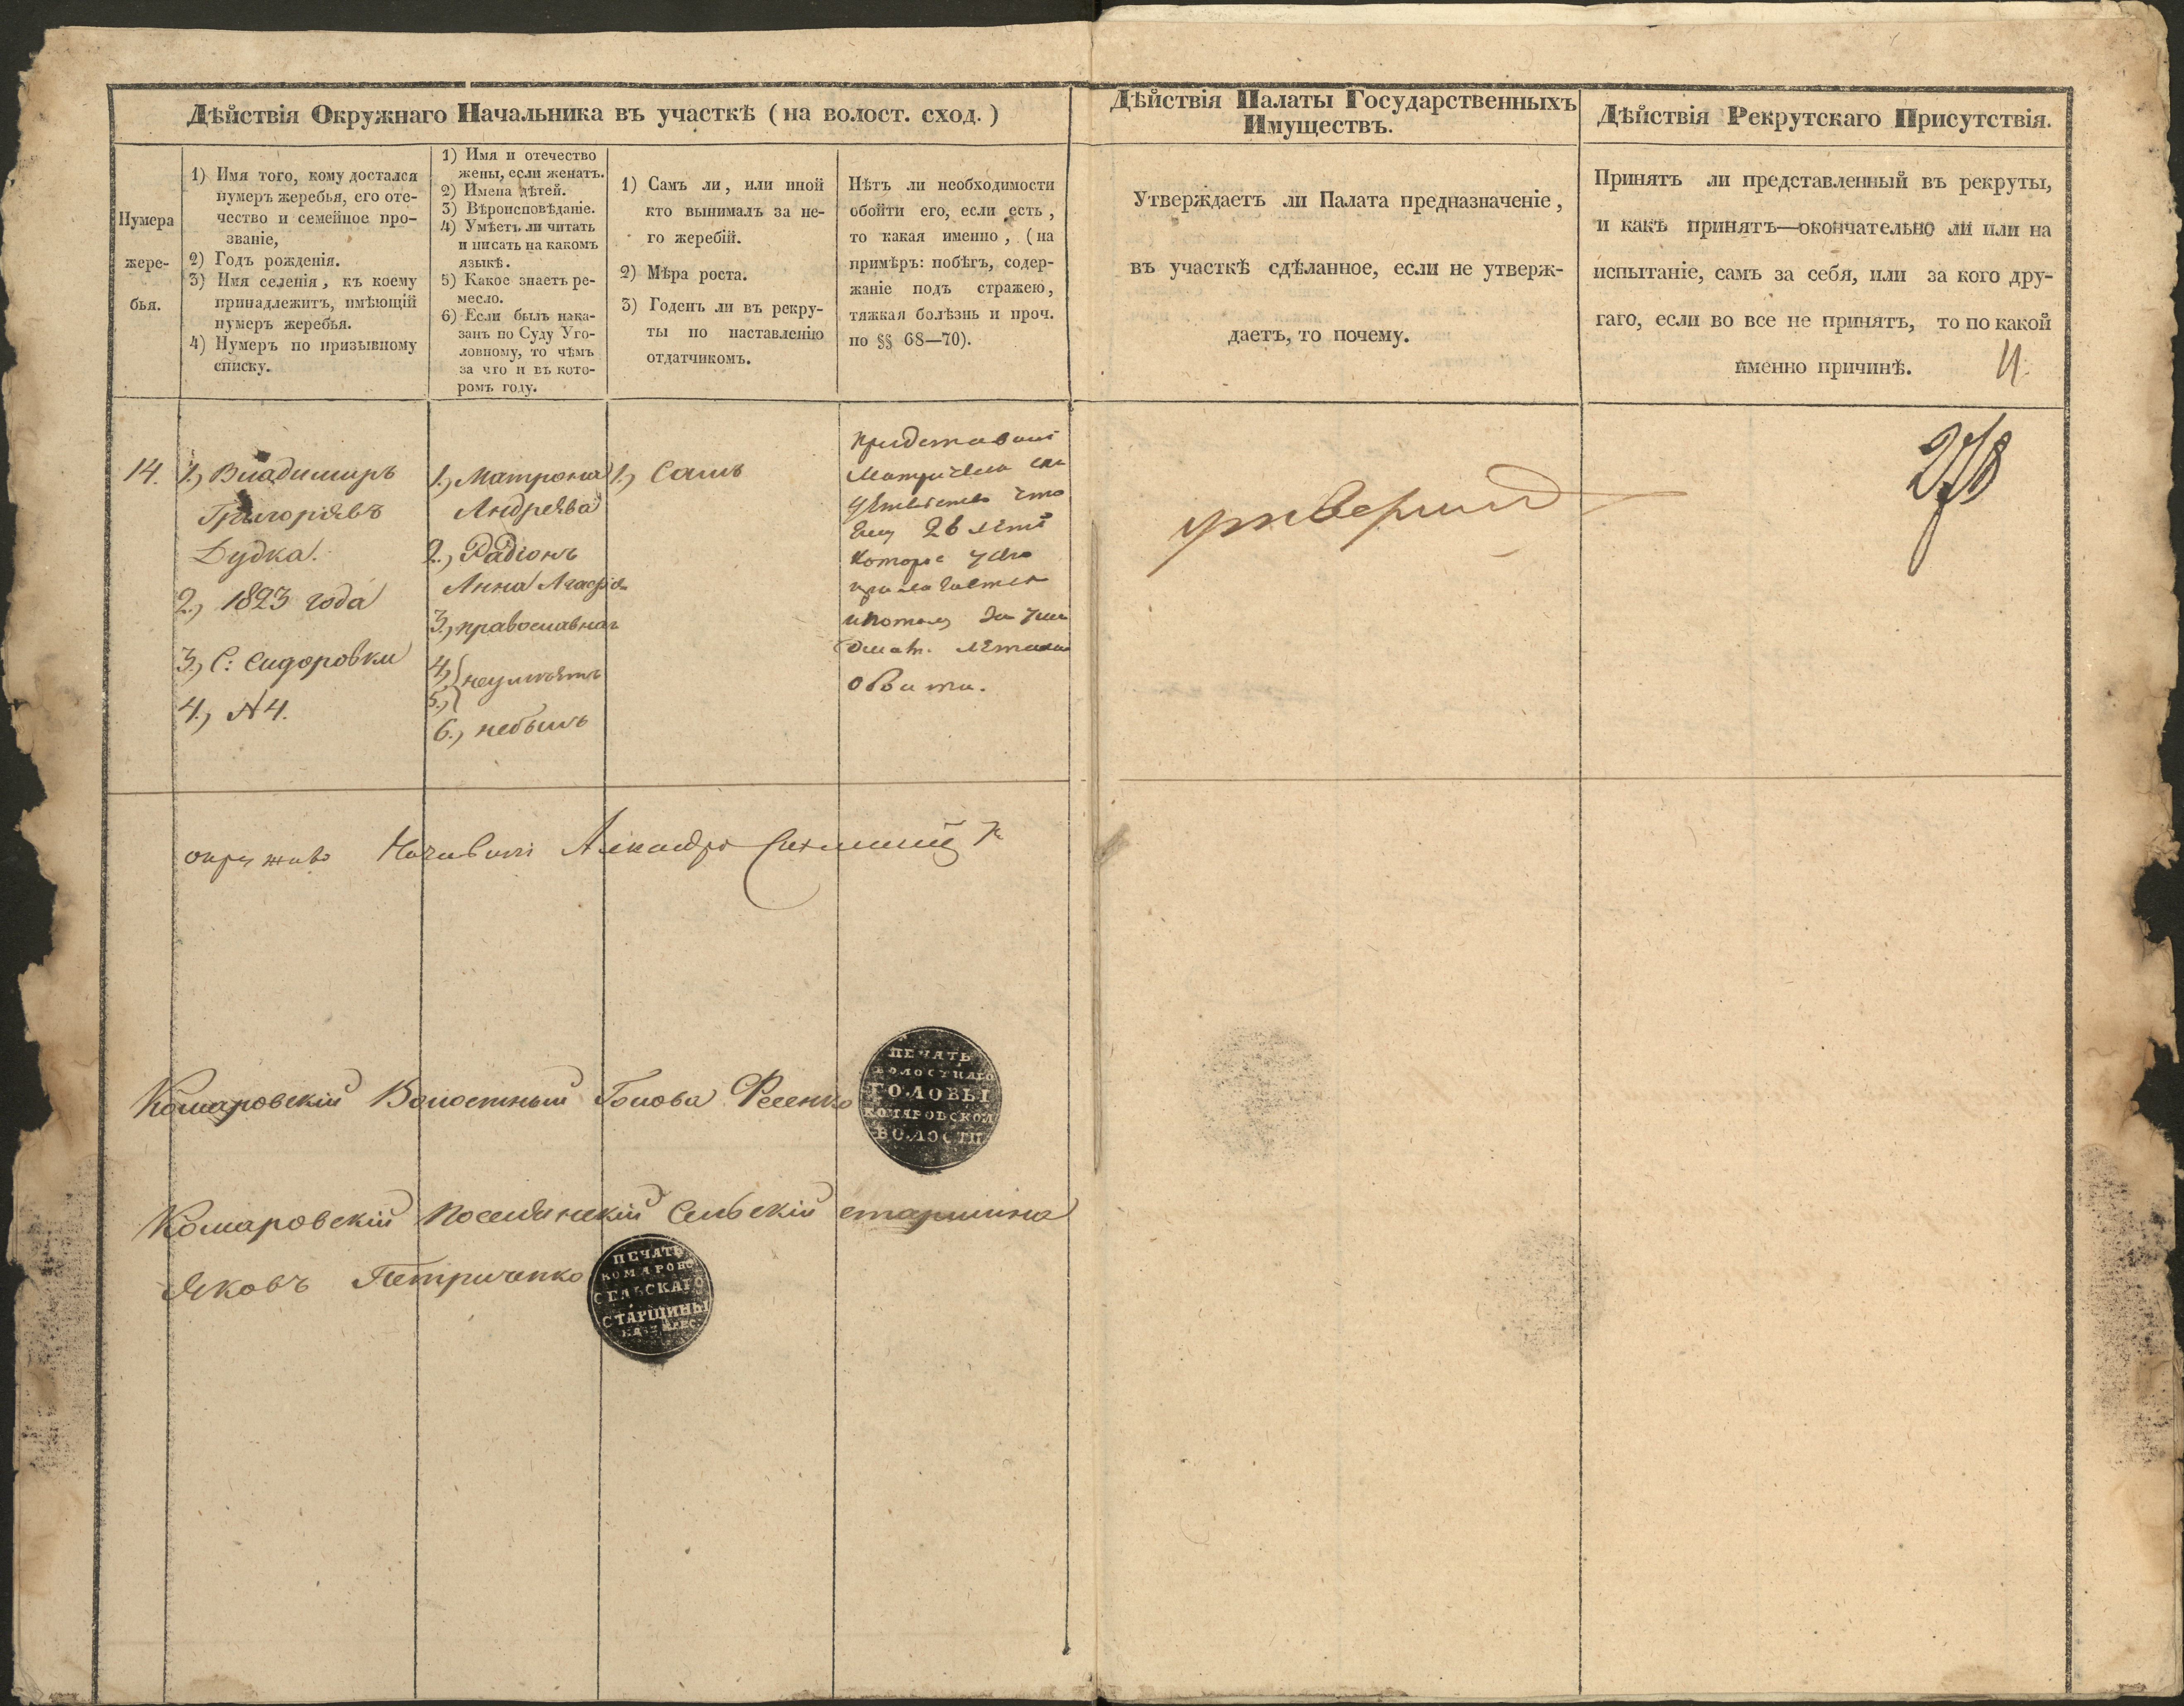 Дѣйствія Окружнаго Начальника въ участкѣ (на волост. сход.)
Дѣйствія Палаты Государственныхъ
Имуществъ.
Дѣйствія Рекрутскаго Присутствія.
Нумера
жере-
бья.
1) Имя того, кому достался
нумеръ жеребья, его оте-
чество и семейное про-
званіе,
2) Годъ рожденія.
3) Имя селенія, къ коему
принадлежитъ, имѣющій
нумеръ жеребья.
4) Нумеръ по призывному
списку.
1) Имя и отечество
жены, если женатъ.
2) Имена дѣтей.
3) Вѣроисповѣданіе.
4) Умѣетъ ли читать
и писать на какомъ
языкѣ.
5) Какое знаетъ ре-
месло.
6) Если былъ нака-
занъ по Суду Уго-
ловному, то чѣмъ
за что и въ кото-
ромъ году.
1) Самъ ли, или иной
кто вынималъ за не-
го жеребій.
2) Мѣра роста.
3) Годенъ ли въ рекру-
ты по наставленію
отдатчикомъ.
Нѣтъ ли необходимости
обойти его, если есть,
то какая именно, (на
примѣръ: побѣгъ, содер-
жаніе подъ стражею,
тяжкая болѣзнь и проч.
по §§ 68—70).
Утверждаетъ ли Палата предназначеніе,
въ участкѣ сдѣланное, если не утверж-
даетъ, то почему.
Принятъ ли представленный въ рекруты,
и какъ принятъ—окончательно ли или на
испытаніе, самъ за себя, или за кого дру-
гаго, если во все не принятъ, то по какой
именно причинѣ.
14.
1., Владимиръ
Григоріевъ
Дудка.
2., 1823 года
3., С: Сидоровки
4., N4.
1., Матрона
Андреева
2., Радіонъ
Анна
3., православнаг
4., неумѣетъ
5.,
6., небылъ
1., Самъ
что
ему 26 лѣтъ
обойти.
Комаровскій Волостный Голова Фесенко
ПЕЧАТЬ
ВОЛОСТНАГО
ГОЛОВЫ
КОМАРОВСКОЙ
ВОЛОСТИ
Комаровскій Поселянскій Сельскій старшина
Яковъ Петриченко
ПЕЧАТЬ
КОМАРОВС
СЕЛЬСКАГО
СТАРШИНЫ